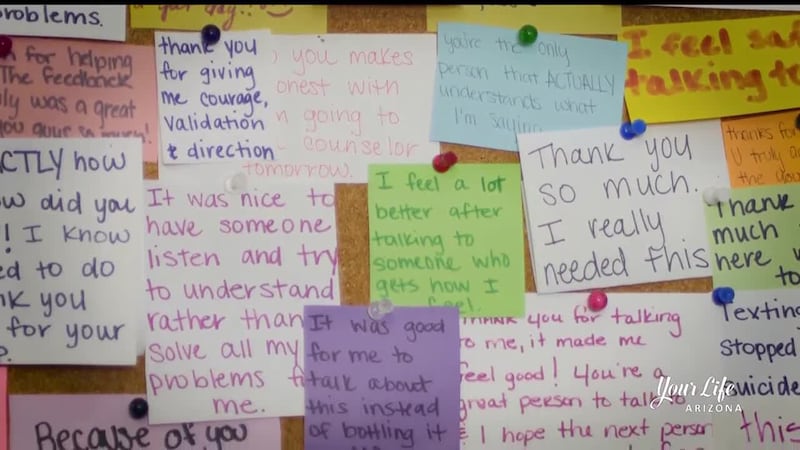 problems.
your day!!
n for helping
The feedback
ly was a great
thank you
for giving
me courage,
validation
& direction
you makes
onest with
n going to
counselor
tomorrow.
you're the only
person that ACTUALLY
understands what
I'm saying
I feel saf
talking to
CTLY how
ow did you
! I know
ed to do
nk you
for your
It was nice to
have someone
listen and try
to understand
rather than
solve all my
problems f
me.
I feel a lot
better after
talking to
someone who
gets how I
feel.
Thank you
so much.
I really
needed this
thanks for
U truly a
the do
Thank
much
here w
to
It was good
for me to
talk about
this instead
of bottling it
THANK you for talking
to me, it made me
feel good! You're a
great person to talk to
& I hope the next person
Texting
stopped
suicide
this
Because of you
Your Life
ARIZONA